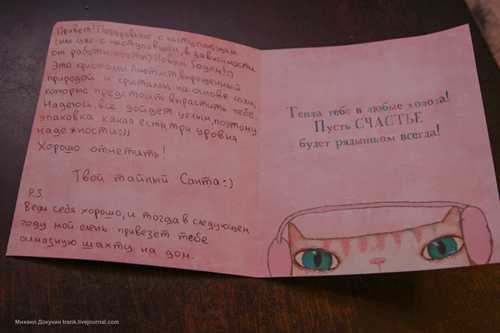 Привет! Поздравляю с наступающим
(или уже с наступившим, в зависимости
от работы почты) Новым Годом!:)
Это кристалл Аметист, выращенный
природой и кристалл на основе соли,
который предстоит вырастить тебе.
Надеюсь, всё дойдёт целым, поэтому
упаковка какая есть, три уровня
надежности:))
Хорошо отметить!
Твой тайный Санта:)
P.S.
Веди себя хорошо, и тогда в следующем
году мой олень привезет тебе
алмазную шахту на дом.
Тепла тебе в любые холода!
Пусть СЧАСТЬЕ
будет рядышком всегда!
Михаил Докукин trank.livejournal.com